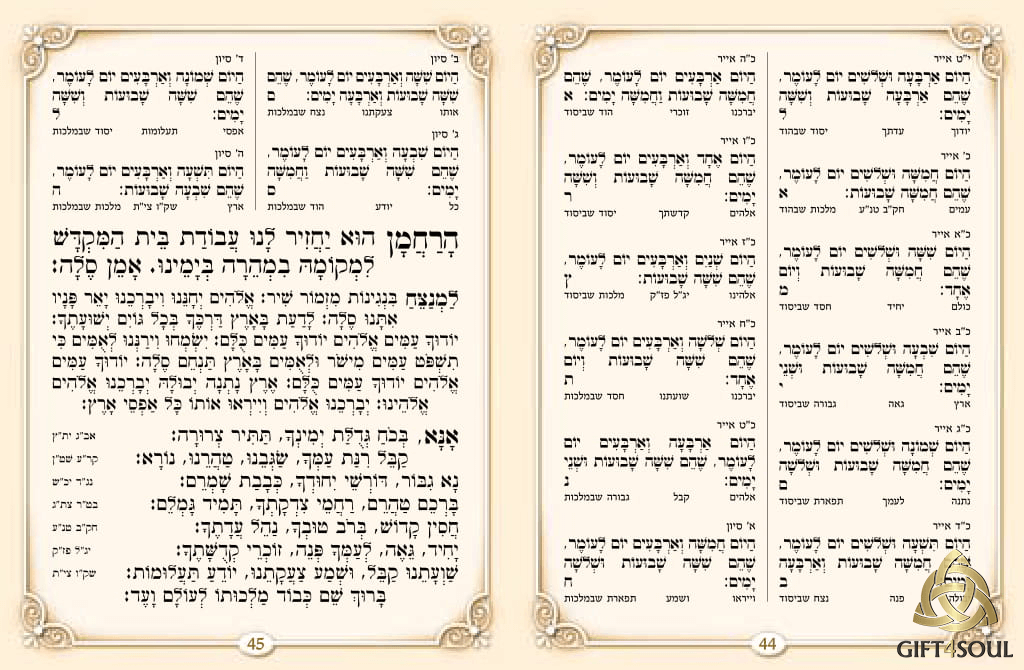 י״ט אייר
הַיּוֹם אַרְבָּעָה וּשְׁלֹשִׁים יוֹם לָעוֹמֶר,
שֶׁהֵם אַרְבָּעָה שָׁבוּעוֹת וְשִׁשָּׁה
יָמִים: ל
יודוך עדתך יסוד שבהוד
כ׳ אייר
הַיּוֹם חֲמִשָּׁה וּשְׁלֹשִׁים יוֹם לָעוֹמֶר,
שֶׁהֵם חֲמִשָּׁה שָׁבוּעוֹת: א
עמים חק״ב טנ״ע מלכות שבהוד
כ״א אייר
הַיּוֹם שִׁשָּׁה וּשְׁלֹשִׁים יוֹם לָעוֹמֶר,
שֶׁהֵם חֲמִשָּׁה שָׁבוּעוֹת וְיוֹם
אֶחָד: מ
כולם יחיד חסד שביסוד
כ״ב אייר
הַיּוֹם שִׁבְעָה וּשְׁלֹשִׁים יוֹם לָעוֹמֶר,
שֶׁהֵם חֲמִשָּׁה שָׁבוּעוֹת וּשְׁנֵי
יָמִים: י
ארץ גאה גבורה שביסוד
כ״ג אייר
הַיּוֹם שְׁמוֹנָה וּשְׁלֹשִׁים יוֹם לָעוֹמֶר,
שֶׁהֵם חֲמִשָּׁה שָׁבוּעוֹת וּשְׁלֹשָׁה
יָמִים: ם
נתנה לעמך תפארת שביסוד
כ״ד אייר
הַיּוֹם תִּשְׁעָה וּשְׁלֹשִׁים יוֹם לָעוֹמֶר,
שֶׁהֵם חֲמִשָּׁה שָׁבוּעוֹת וְאַרְבָּעָה
ב
פנה נצח שביסוד
כ״ה אייר
הַיּוֹם אַרְבָּעִים יוֹם לָעוֹמֶר, שֶׁהֵם
חֲמִשָּׁה שָׁבוּעוֹת וַחֲמִשָּׁה יָמִים: א
יברכנו זוכרי הוד שביסוד
כ״ו אייר
הַיּוֹם אֶחָד וְאַרְבָּעִים יוֹם לָעוֹמֶר,
שֶׁהֵם חֲמִשָּׁה שָׁבוּעוֹת וְשִׁשָּׁה
יָמִים: ר
אלהים קדשתך יסוד שביסוד
כ״ז אייר
הַיּוֹם שְׁנַיִם וְאַרְבָּעִים יוֹם לָעוֹמֶר,
שֶׁהֵם שִׁשָּׁה שָׁבוּעוֹת: ץ
אלהינו יג״ל פז״ק מלכות שביסוד
כ״ח אייר
הַיּוֹם שְׁלֹשָׁה וְאַרְבָּעִים יוֹם לָעוֹמֶר,
שֶׁהֵם שִׁשָּׁה שָׁבוּעוֹת וְיוֹם
אֶחָד: ת
יברכנו שועתנו חסד שבמלכות
כ״ט אייר
הַיּוֹם אַרְבָּעָה וְאַרְבָּעִים יוֹם
לָעוֹמֶר, שֶׁהֵם שִׁשָּׁה שָׁבוּעוֹת וּשְׁנֵי
יָמִים: נ
אלהים קבל גבורה שבמלכות
א׳ סיון
הַיּוֹם חֲמִשָּׁה וְאַרְבָּעִים יוֹם לָעוֹמֶר,
שֶׁהֵם שִׁשָּׁה שָׁבוּעוֹת וּשְׁלֹשָׁה
יָמִים: ח
וייראו ושמע תפארת שבמלכות
44
ב׳ סיון
הַיּוֹם שִׁשָּׁה וְאַרְבָּעִים יוֹם לָעוֹמֶר, שֶׁהֵם
שִׁשָּׁה שָׁבוּעוֹת וְאַרְבָּעָה יָמִים: ם
אותו צעקתנו נצח שבמלכות
ג׳ סיון
הַיּוֹם שִׁבְעָה וְאַרְבָּעִים יוֹם לָעוֹמֶר,
שֶׁהֵם שִׁשָּׁה שָׁבוּעוֹת וַחֲמִשָּׁה
יָמִים: ם
כל יודע הוד שבמלכות
ד׳ סיון
הַיּוֹם שְׁמוֹנָה וְאַרְבָּעִים יוֹם לָעוֹמֶר,
שֶׁהֵם שִׁשָּׁה שָׁבוּעוֹת וְשִׁשָּׁה
יָמִים: ל
אפסי תעלומות יסוד שבמלכות
ה׳ סיון
הַיּוֹם תִּשְׁעָה וְאַרְבָּעִים יוֹם לָעוֹמֶר,
שֶׁהֵם שִׁבְעָה שָׁבוּעוֹת: ה
ארץ שק״ו צי״ת מלכות שבמלכות
הָרַחֲמָן הוּא יַחֲזִיר לָנוּ עֲבוֹדַת בֵּית הַמִּקְדָּשׁ
לִמְקוֹמָהּ בִּמְהֵרָה בְּיָמֵינוּ. אָמֵן סֶלָה:
לַמְנַצֵּחַ בִּנְגִינוֹת מִזְמוֹר שִׁיר: אֱלֹהִים יְחָנֵּנוּ וִיבָרְכֵנוּ יָאֵר פָּנָיו
אִתָּנוּ סֶלָה: לָדַעַת בָּאָרֶץ דַּרְכֶּךָ בְּכָל גּוֹיִם יְשׁוּעָתֶךָ:
יוֹדוּךָ עַמִּים אֱלֹהִים יוֹדוּךָ עַמִּים כֻּלָּם: יִשְׂמְחוּ וִירַנְּנוּ לְאֻמִּים כִּי
תִשְׁפֹּט עַמִּים מִישֹׁר וּלְאֻמִּים בָּאָרֶץ תַּנְחֵם סֶלָה: יוֹדוּךָ עַמִּים
אֱלֹהִים יוֹדוּךָ עַמִּים כֻּלָּם: אֶרֶץ נָתְנָה יְבוּלָהּ יְבָרְכֵנוּ אֱלֹהִים
אֱלֹהֵינוּ: יְבָרְכֵנוּ אֱלֹהִים וְיִירְאוּ אוֹתוֹ כָּל אַפְסֵי אָרֶץ:
אָנָּא, בְּכֹחַ גְּדֻלַּת יְמִינְךָ, תַּתִּיר צְרוּרָה: אב״ג ית״ץ
קַבֵּל רִנַּת עַמְּךָ, שַׂגְּבֵנוּ, טַהֲרֵנוּ, נוֹרָא: קר״ע שט״ן
נָא גִבּוֹר, דּוֹרְשֵׁי יִחוּדְךָ, כְּבָבַת שָׁמְרֵם: נג״ד יכ״ש
בָּרְכֵם טַהֲרֵם, רַחֲמֵי צִדְקָתְךָ, תָּמִיד גָּמְלֵם: בט״ר צת״ג
חֲסִין קָדוֹשׁ, בְּרֹב טוּבְךָ, נַהֵל עֲדָתֶךָ: חק״ב טנ״ע
יָחִיד, גֵּאֶה, לְעַמְּךָ פְּנֵה, זוֹכְרֵי קְדֻשָּׁתֶךָ: יג״ל פז״ק
שַׁוְעָתֵנוּ קַבֵּל, וּשְׁמַע צַעֲקָתֵנוּ, יוֹדֵעַ תַּעֲלוּמוֹת: שק״ו צי״ת
בָּרוּךְ שֵׁם כְּבוֹד מַלְכוּתוֹ לְעוֹלָם וָעֶד:
45
GIFT4SOUL